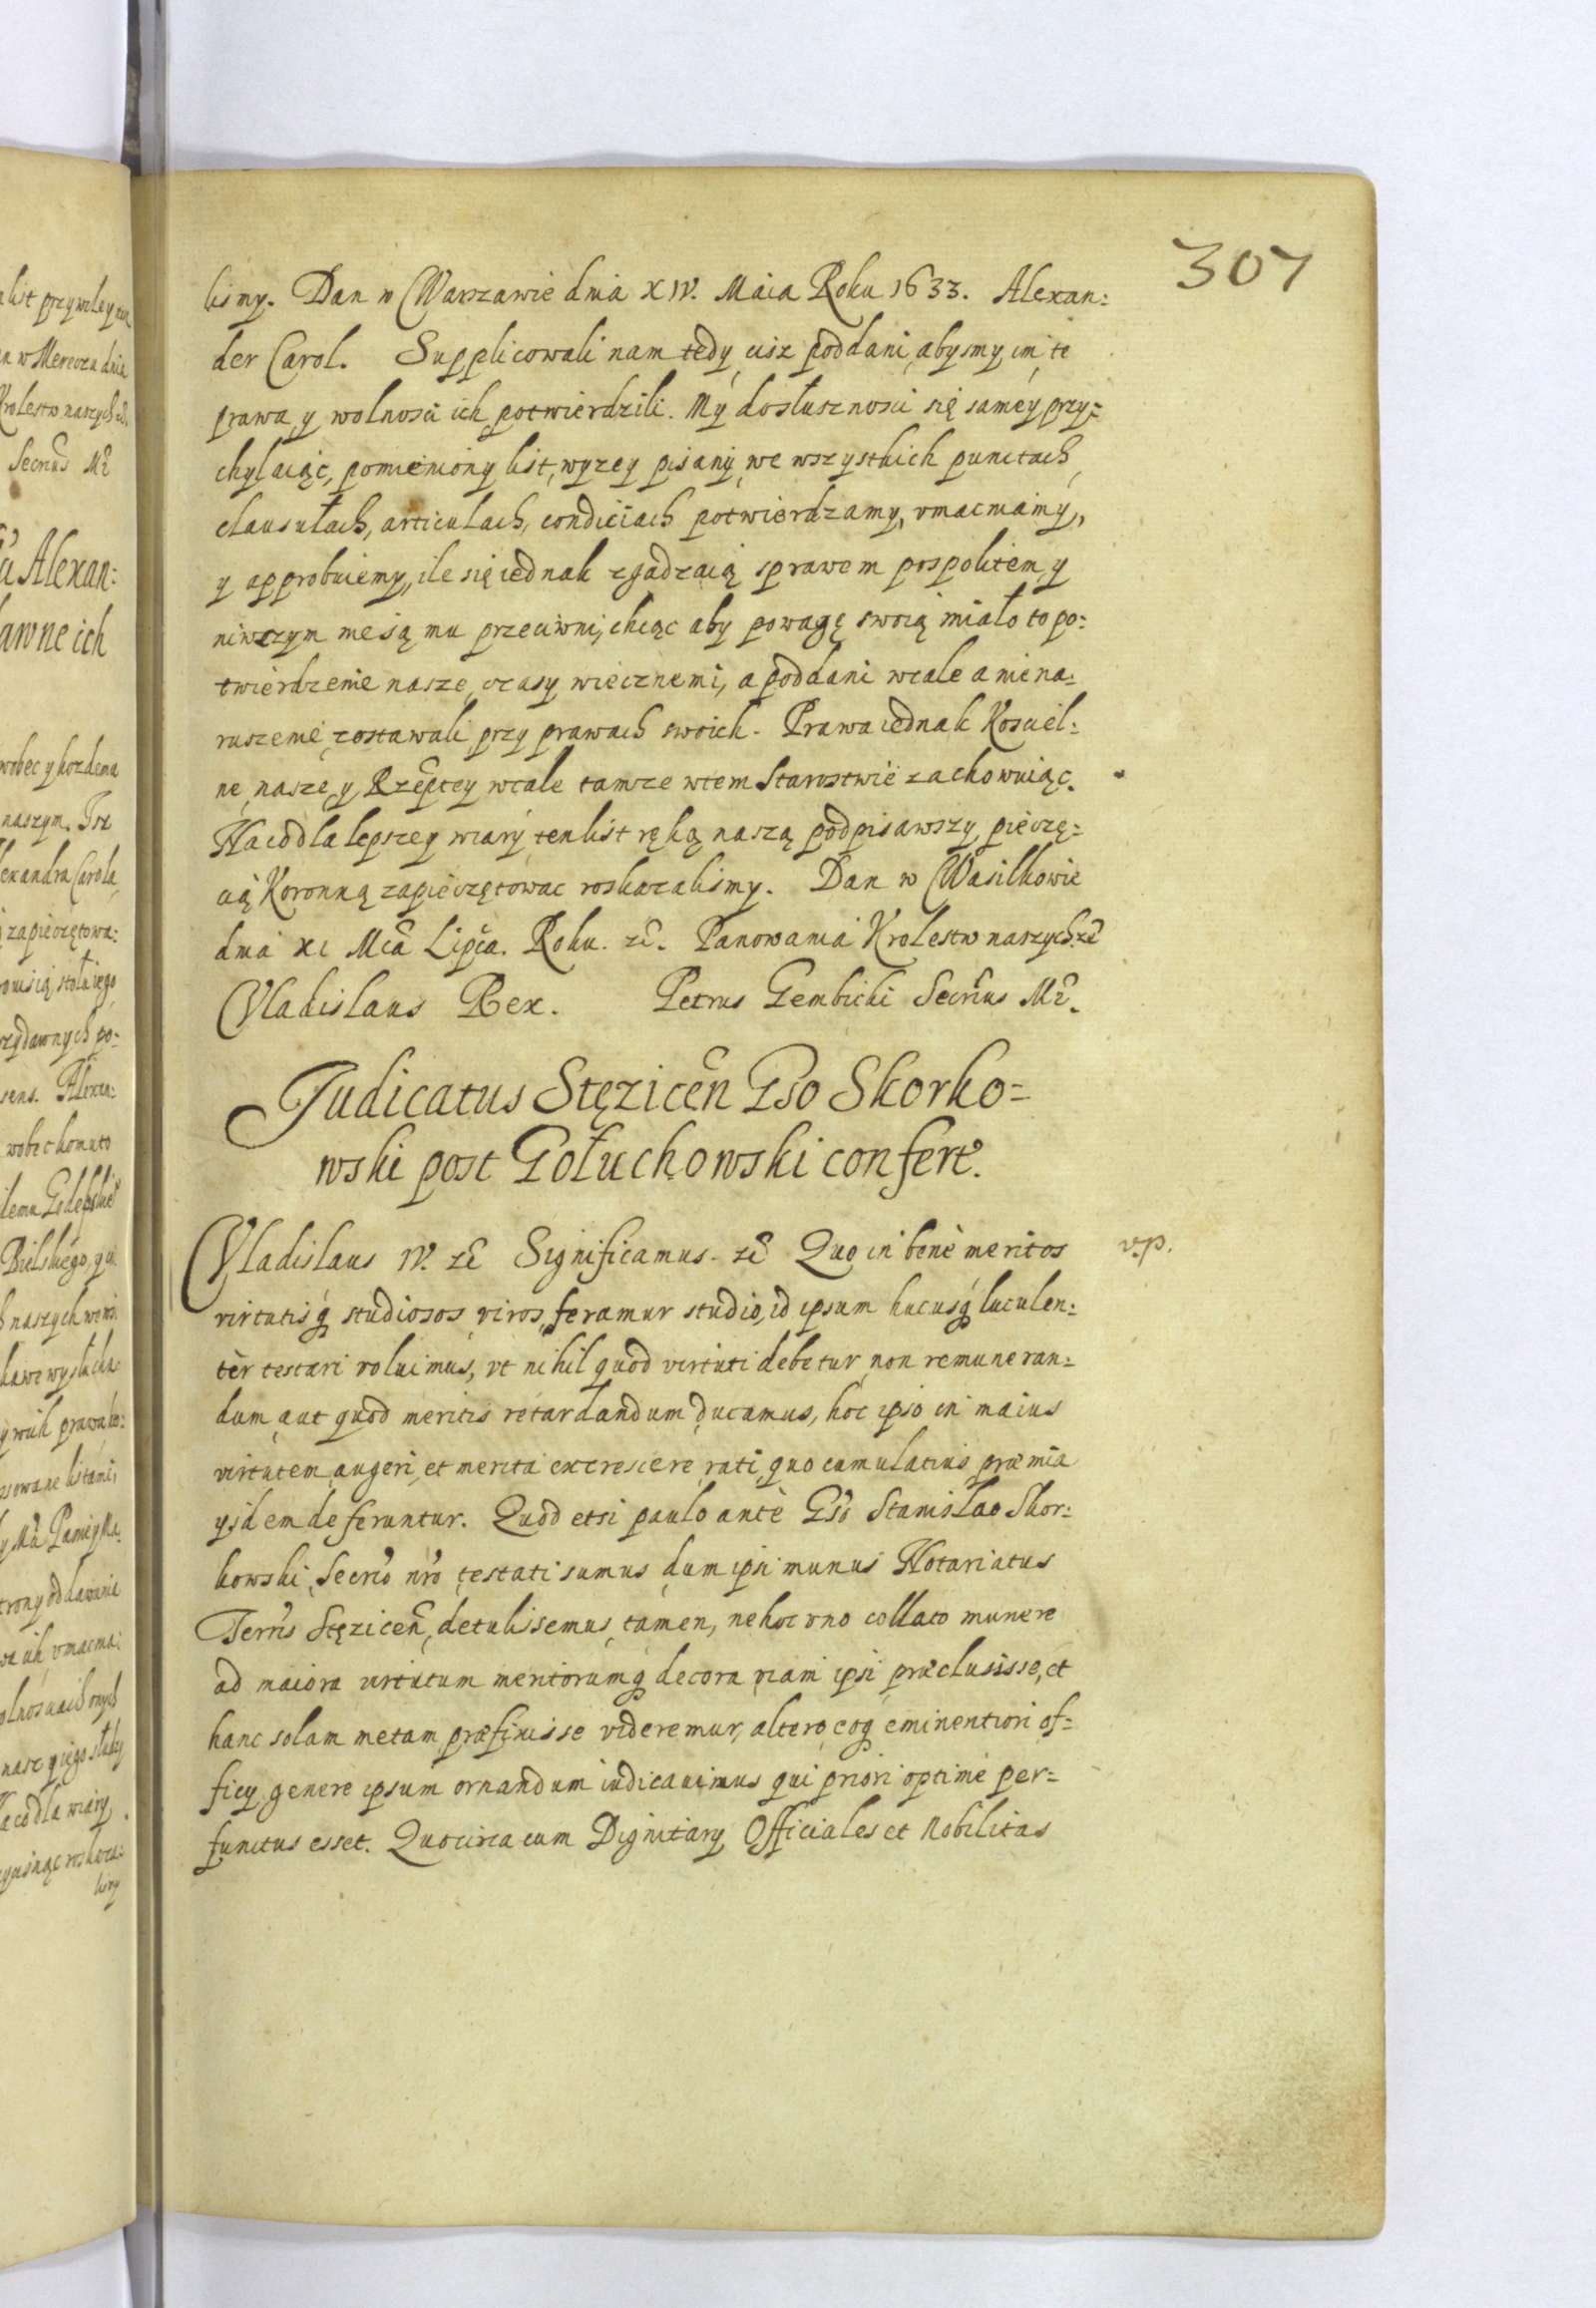 307
lismy. Dan w Warszawie dnia XIV. Maia Roku 1633. Alexan:
der Carol. Supplicowali nam tedy cisz poddani, abysmy im te
prawa y wolnosci ich potwierdzili. My do słusznosci się samey przy:
chylaiąc, pomieniony list, wyzey pisany, we wszystkich punctach,
clausułach, articulach, condiciach potwierdzamy, vmacniamy,
y approbuiemy, ile się iednak zgadzaią sprawem pospolitem, y
niwczym nie są mu przeciwni, chcąc aby powagę swoią miało to po:
twierdzenie nasze, czasy wiecznemi, a poddani wcale a niena:
ruszenie zostawali przy prawach swoich. Prawa iednak Kosciel:
ne, nasze, y Rzeptey wcale tamze wtem Starostwie zachowuiąc.
Na co dla lepszey wiary, ten list ręką naszą podpisawszy, pieczę:
cią Koronną zapieczętowac roskazalismy. Dan w Wasilkowie
dnia XI Mca Lipca. Roku. zc. Panowania Krolestw naszych. zc
Vladislaus Rex. Petrus Gembicki Secrius Mr.
Judicatus Stęzicen Gso Skorko=
wski post Gołuchowski confert.
Vladislaus IV. zc Significamus. zc Quo in benè meritos
v.p.
virtutisq studiosos viros, feramur studio, id ipsum hucusq luculen:
tèr testari voluimus, vt nihil quod virtuti debetur, non remuneran:
dum, aut quod meritis retardandum ducamus, hoc ipso in maius
virtutem augeri, et merita excrescere rati, quo cumulatius præmia
ysdem deferuntur. Quod etsi paulo antè Gso Stanislao Skor:
kowski, Secrio nro testati sumus, dum ipsi munus Notariatus
Terris Stęzicen, detulissemus, tamen, ne hoc vno collato munere
ad maiora virtutum meritorumq decora viam ipsi præclusisse, et
hanc solam metam præfixisse videremur, altero eoq eminentiori of=
ficy genere ipsum ornandum iudicauimus qui priori optimè per=
functus esset. Quocirca cum Dignitary Officiales et Nobilitas